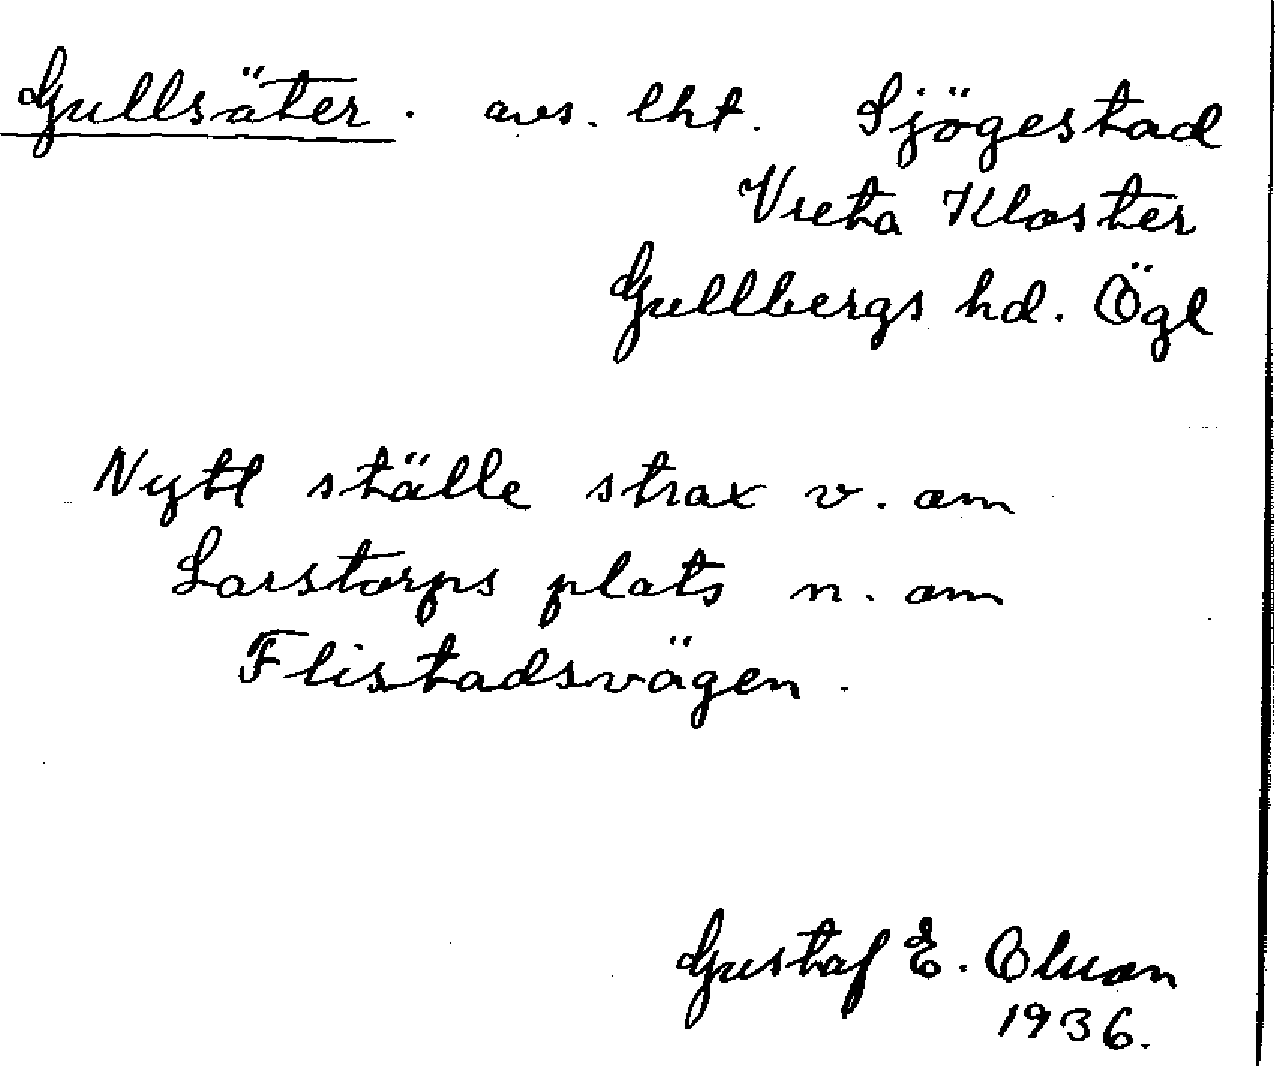 Gullsäter. avs. lht. Sjögestad
Vreta Kloster
Gullbergs hd. Ögl
Nytt ställe strax v. om
Larstorps plats n. om
Flistadsvägen.
Gustaf E. Olson
1936.